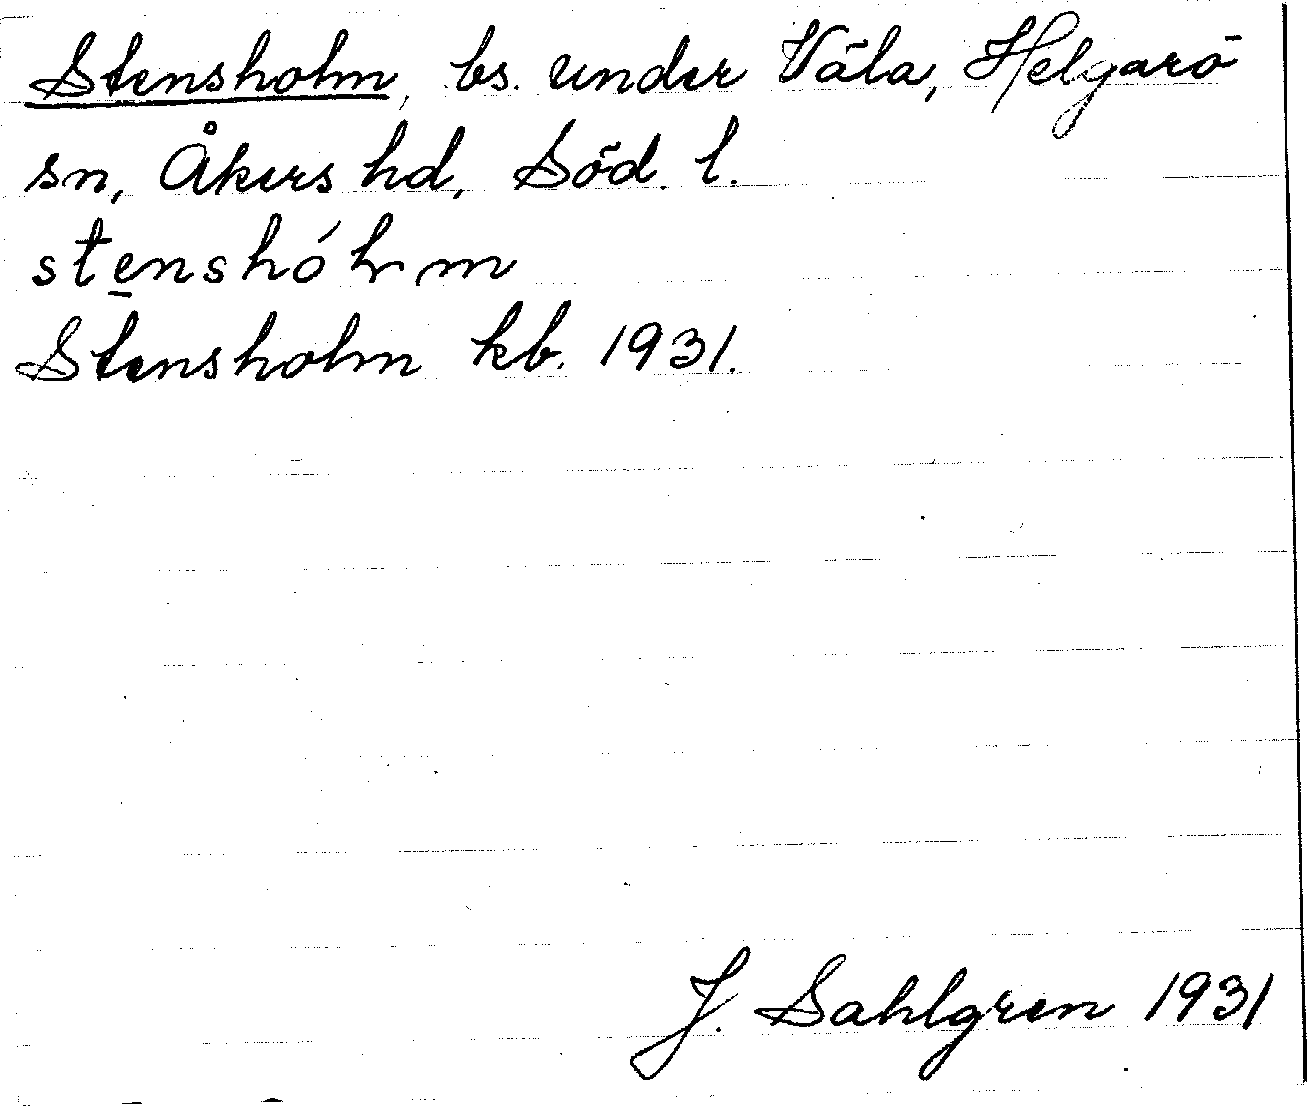 Stensholm, bs. under Väla, Helgarö
sn, Åkers hd, Söd. l.
stenshólm
Stensholm kb. 1931.
J. Sahlgren 1931